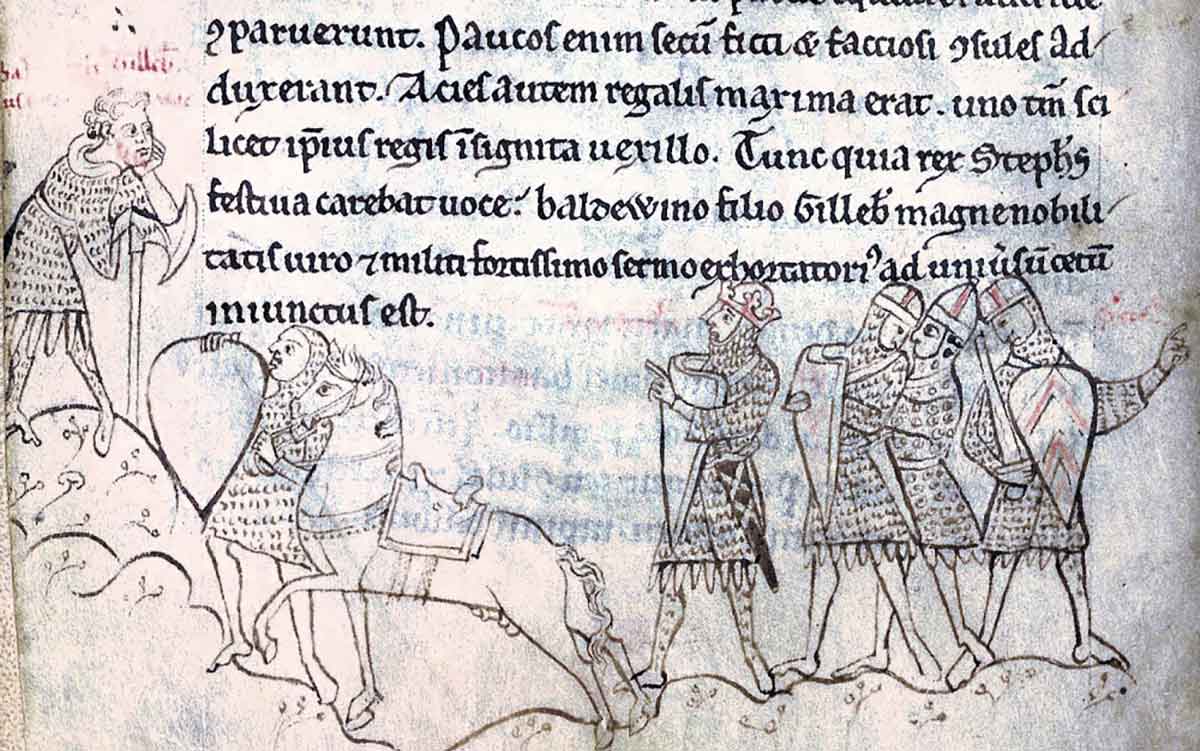 ꝯparuerunt. Paucos enim secū ficti & facciosi ꝯsules ad
duxerant. Acies autem regalis maxima erat. uno tm̄ sci
licet ip̄ius regis īsignita uexillo. Tunc quia rex Steph̄s
festiua carebat uoce: baldewino filio Gilleb̄ magne nobili
tatis uiro ⁊ militi fortissimo sermo exhortatoriꝰ ad uniūsū cetū
iniunctus est.